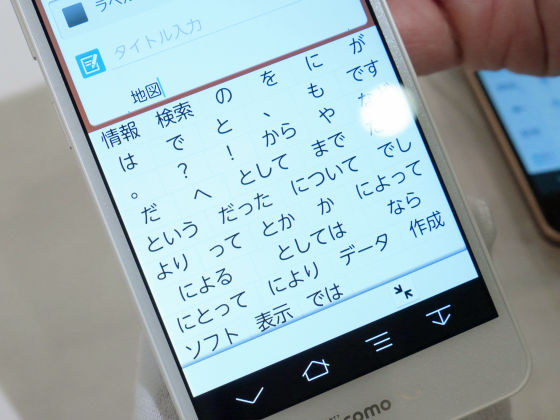 ラベル
タイトル入力
地図
情報 検索 の を に が
は で と 、 も です
。 ? ! から や
だ へ として まで でし
という だった について によって
より って とか か なら
による としては データ 作成
にとって により
ソフト 表示 では
como